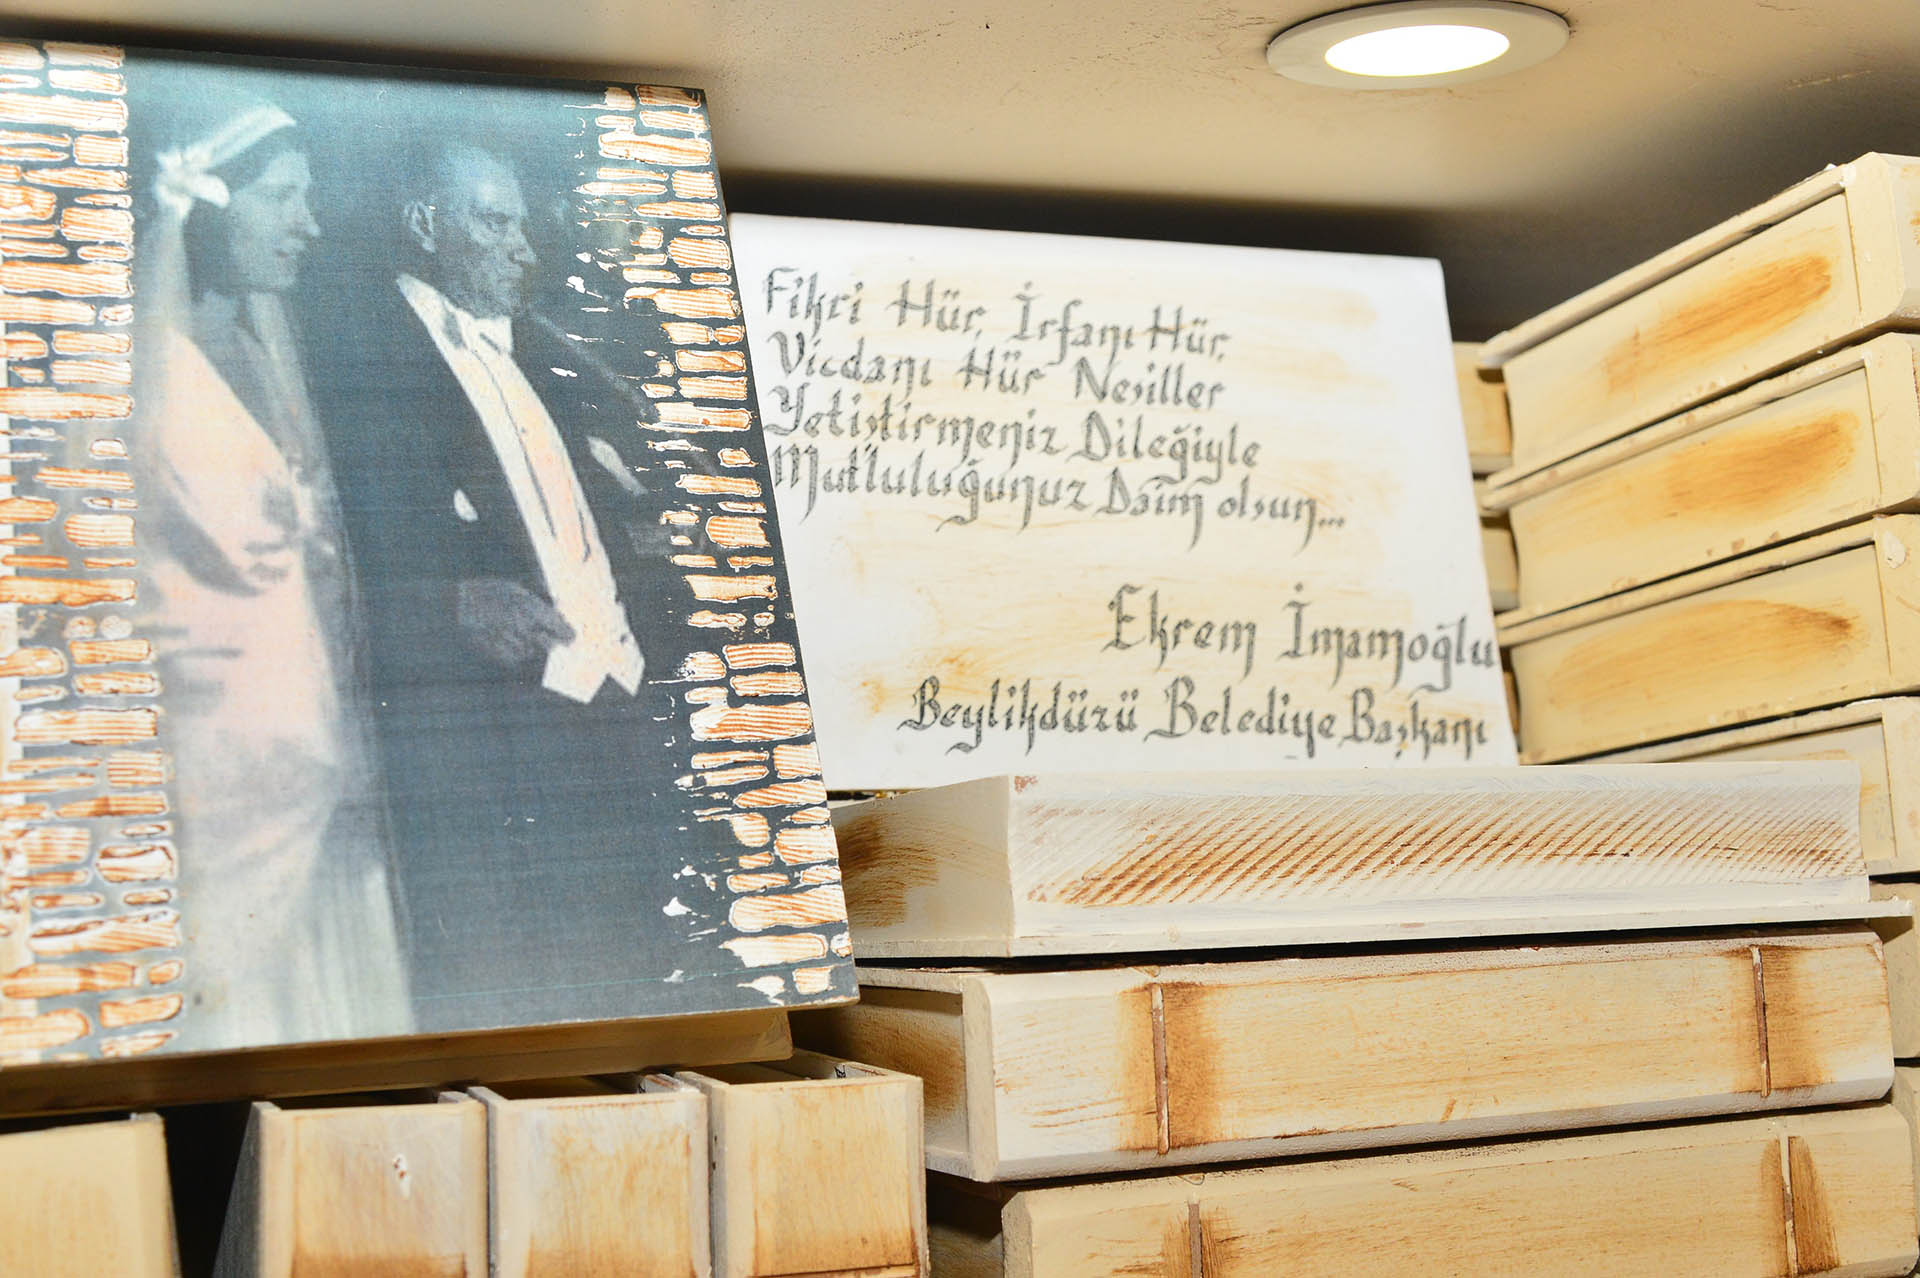 Fikri Hür, İrfanı Hür,
Vicdanı Hür Nesiller
Yetiştirmeniz Dileğiyle
Mutluluğunuz Daim olsun...
Ekrem İmamoğlu
Beylikdüzü Belediye Başkanı